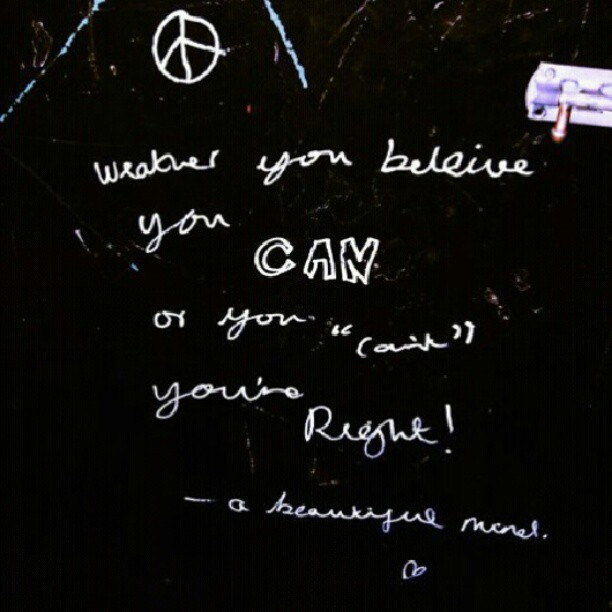 Weather you beleive
you
CAN
or you "can't"
you're
Right!
— a beautiful mind.